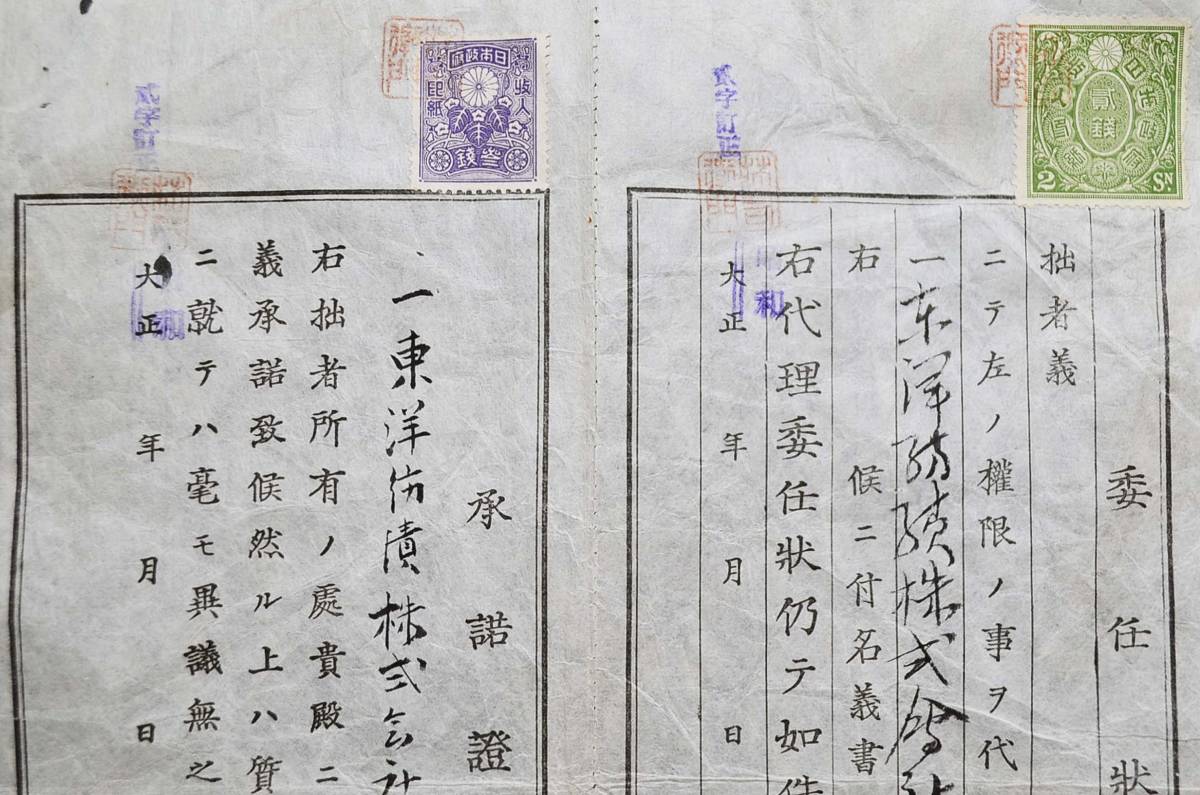 委任狀
拙者義
ニテ左ノ權限ノ事ヲ代
一東洋紡績株式會社
右　候ニ付名義書
右代理委任狀仍テ如件
大正　年　月　日
和
貳字訂正
貳錢
2 SN
承諾證
一東洋紡績株式会社
右拙者所有ノ處貴殿ニ
義承諾致候然ル上ハ質
ニ就テハ毫モ異議無之
大正　年　月　日
和
貳字訂正
日本政府
收入印紙
參錢